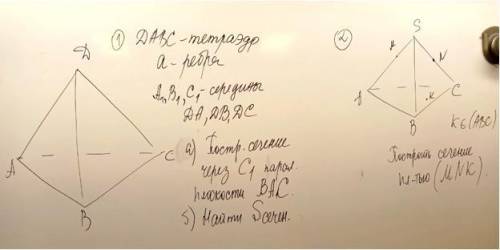 ① DABC - тетраэдр
a - ребра
A₁, B₁, C₁ - середины
DA, DB, DC
а) Постр. сечение
через C₁ парал.
плоскости BAC.
б) Найти Sсечен.
D
A
C
B
②
S
N
A
C
K
B
K ∈ (ABC)
Построить сечение
пл-тью (MNK).